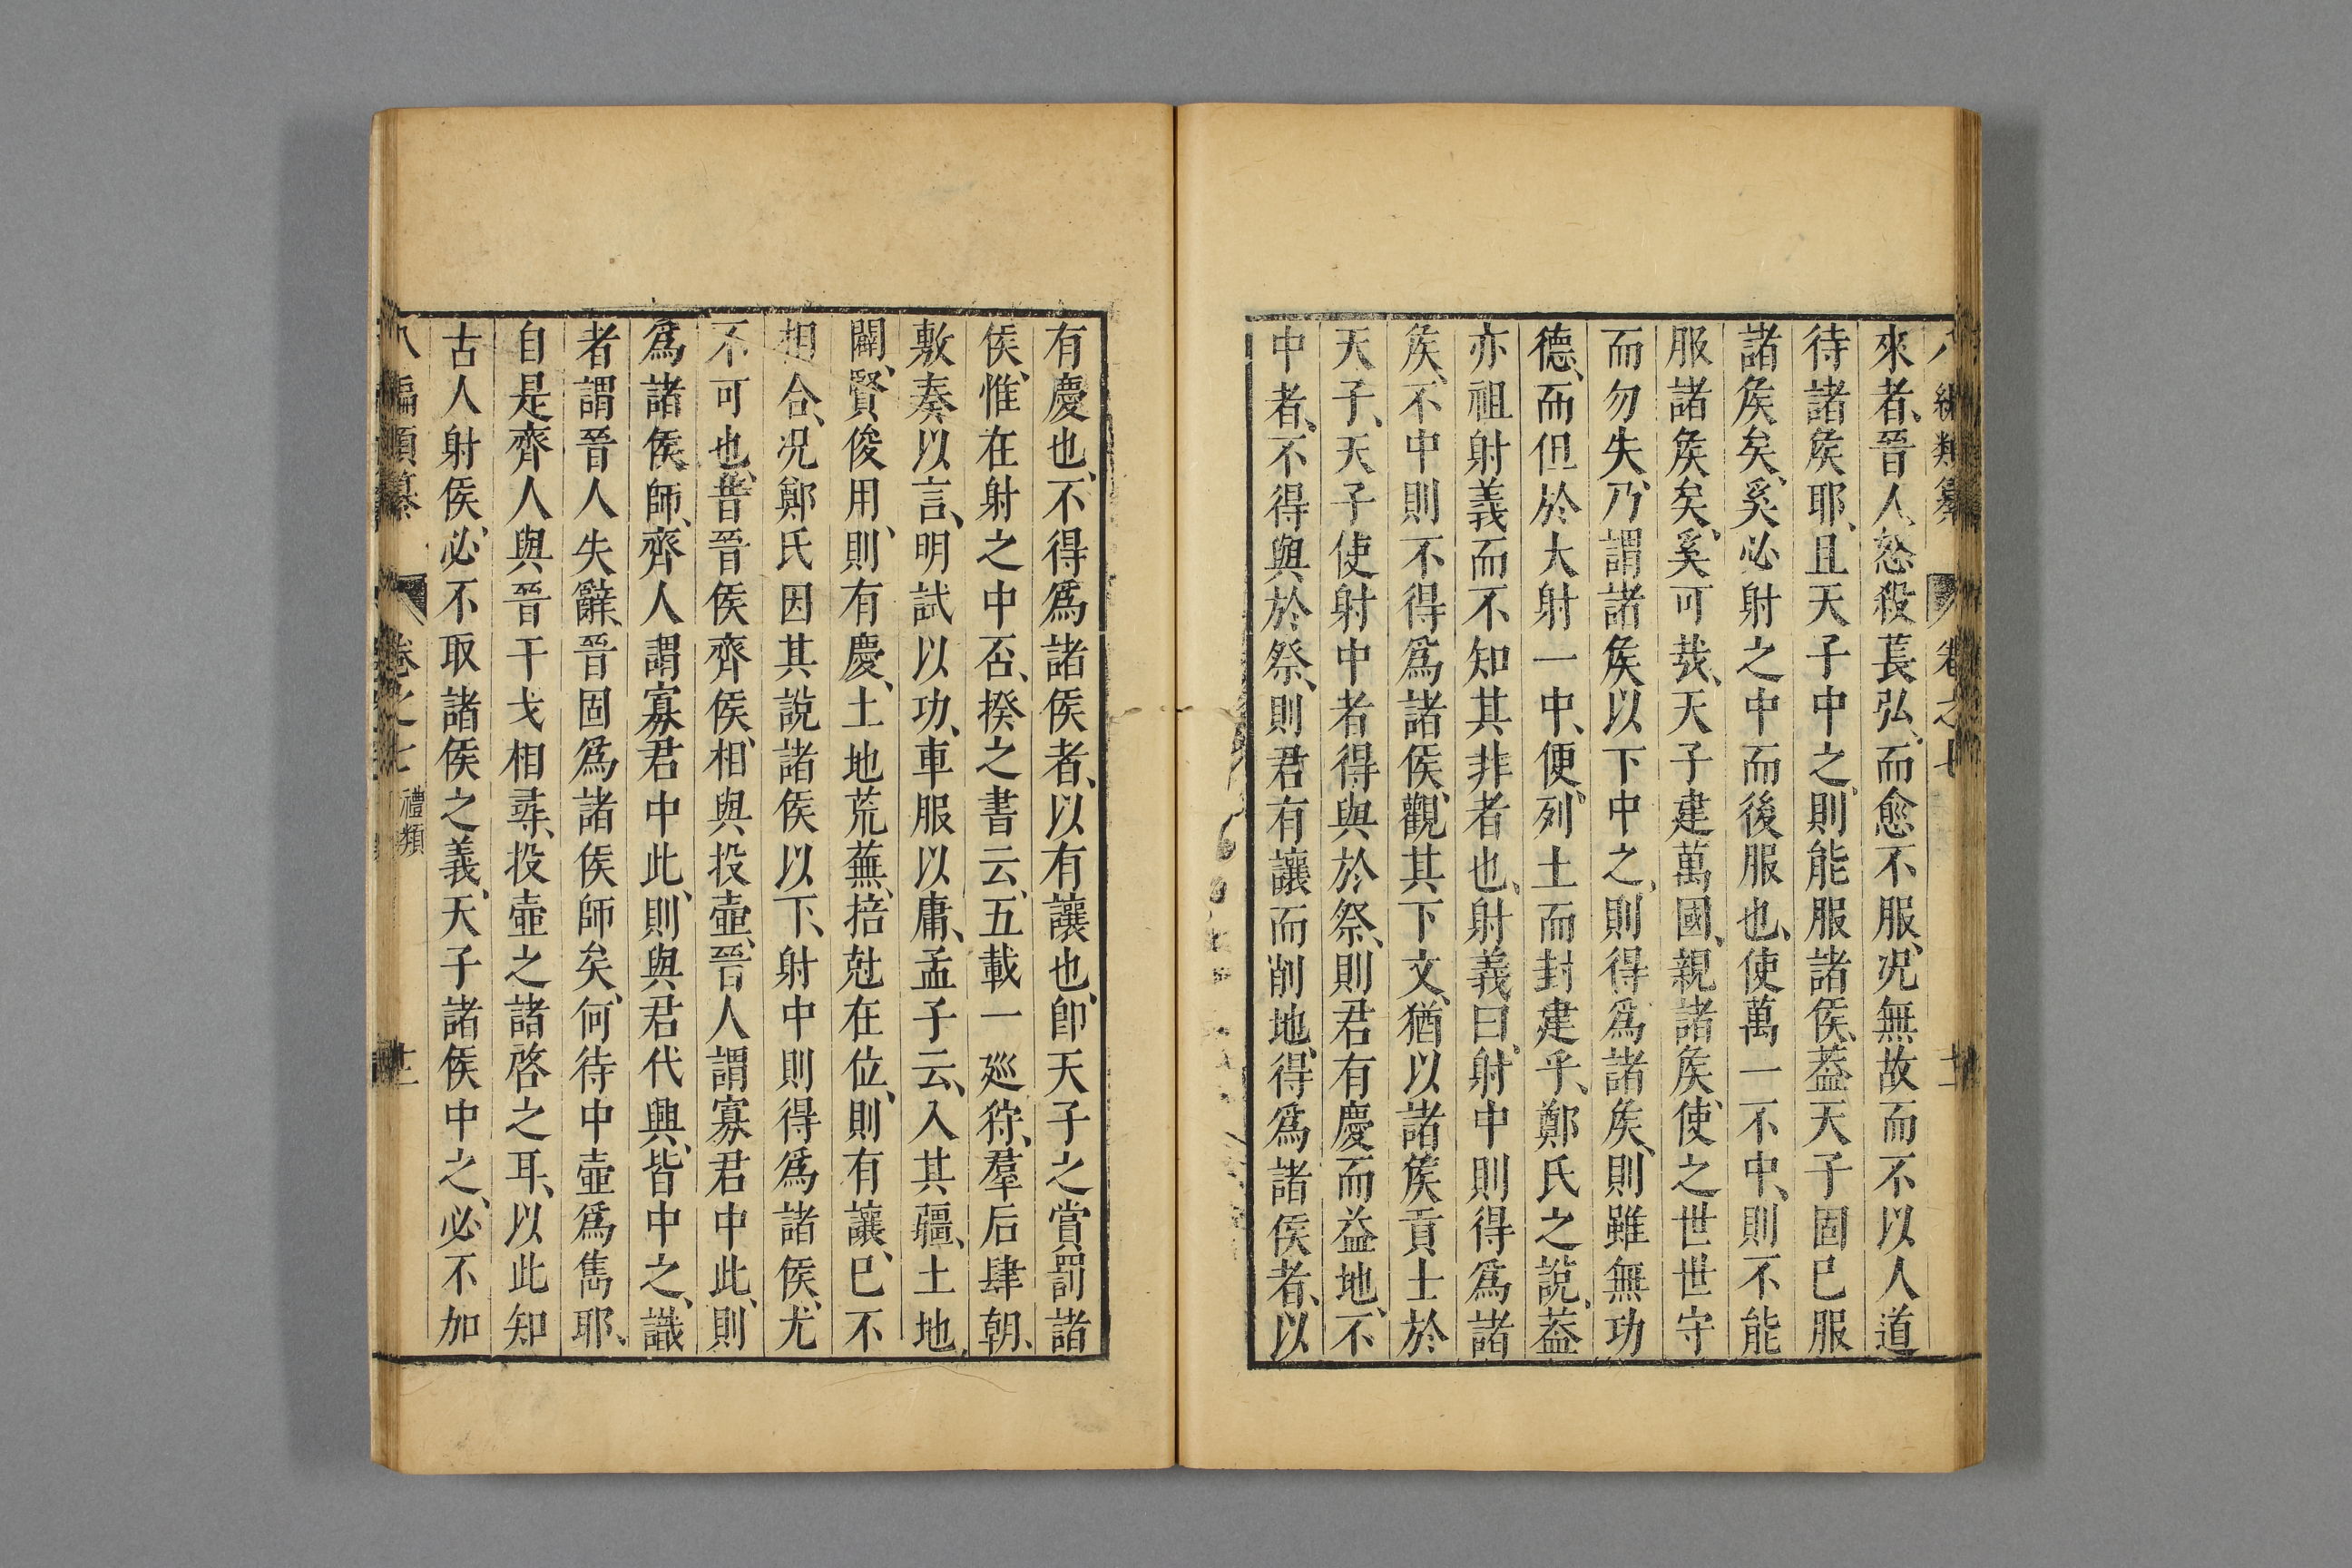 來者、晉人怒殺萇弘、而愈不服、况無故而不以人道
待諸矦耶、且天子中之、則能服諸侯、葢天子固已服
諸矦矣、奚必射之中而後服也、使萬一不中、則不能
服諸矦矣、奚可哉、天子建萬國、親諸矦、使之世世守
而勿失、乃謂諸矦以下中之、則得爲諸矦、則雖無功
德、而但於大射一中、便列土而封建乎、鄭氏之說、葢
亦祖射義而不知其非者也、射義曰、射中則得爲諸
矦、不中則不得爲諸侯、觀其下文、猶以諸矦貢士於
天子、天子使射中者得與於祭、則君有慶而益地、不
中者、不得與於祭、則君有讓而削地、得爲諸侯者、以
有慶也、不得爲諸侯者、以有讓也、卽天子之賞罰諸
侯、惟在射之中否、揆之書云、五載一巡狩、羣后肆朝、
敷奏以言、明試以功、車服以庸、孟子云、入其疆、土地
闢、賢俊用、則有慶、土地荒蕪、掊尅在位、則有讓、已不
相合、况鄭氏因其說諸侯以下、射中則得爲諸侯、尤
不可也、昔晉侯齊侯、相與投壺、晉人謂寡君中此、則
爲諸侯師、齊人謂寡君中此、則與君代興、皆中之、識
者謂晉人失辭、晉固爲諸侯師矣、何待中壺爲雋耶、
自是齊人與晉干戈相尋、投壺之諸啓之耳、以此知
古人射侯、必不取諸侯之義、天子諸侯中之、必不加
八編類纂 卷之七 禮類